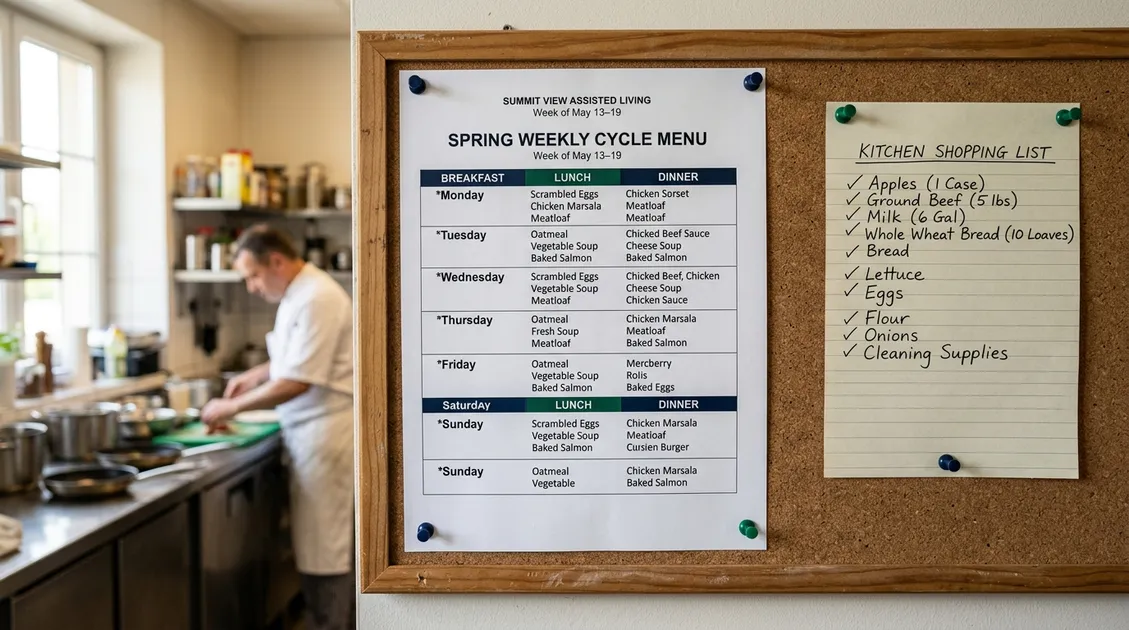 SUMMIT VIEW ASSISTED LIVING
Week of May 13–19
SPRING WEEKLY CYCLE MENU
Week of May 13–19
BREAKFAST LUNCH DINNER
*Monday Scrambled Eggs Chicken Sorset
Chicken Marsala Meatloaf
Meatloaf Meatloaf
*Tuesday Oatmeal Chicked Beef Sauce
Vegetable Soup Cheese Soup
Baked Salmon Baked Salmon
*Wednesday Scrambled Eggs Chicked Beef, Chicken
Vegetable Soup Cheese Soup
Meatloaf Chicken Sauce
*Thursday Oatmeal Chicken Marsala
Fresh Soup Meatloaf
Meatloaf Baked Salmon
*Friday Oatmeal Mercberry
Vegetable Soup Rolis
Baked Salmon Baked Eggs
Saturday LUNCH DINNER
*Sunday Scrambled Eggs Chicken Marsala
Vegetable Soup Meatloaf
Baked Salmon Cursien Burger
*Sunday Oatmeal Chicken Marsala
Vegetable Baked Salmon
KITCHEN SHOPPING LIST
✓ Apples (1 Case)
✓ Ground Beef (5 lbs)
✓ Milk (6 Gal)
✓ Whole Wheat Bread (10 Loaves)
✓ Bread
✓ Lettuce
✓ Eggs
✓ Flour
✓ Onions
✓ Cleaning Supplies